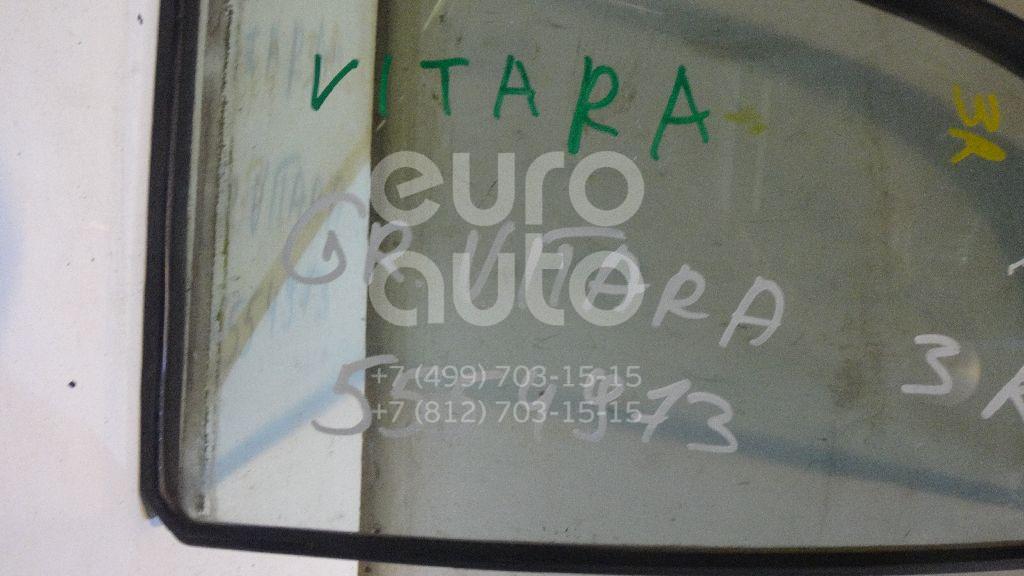 VITARA
ЗR
euro
auto
GR. VITARA
3R
+7 (499) 703-15-15
+7 (812) 703-15-15